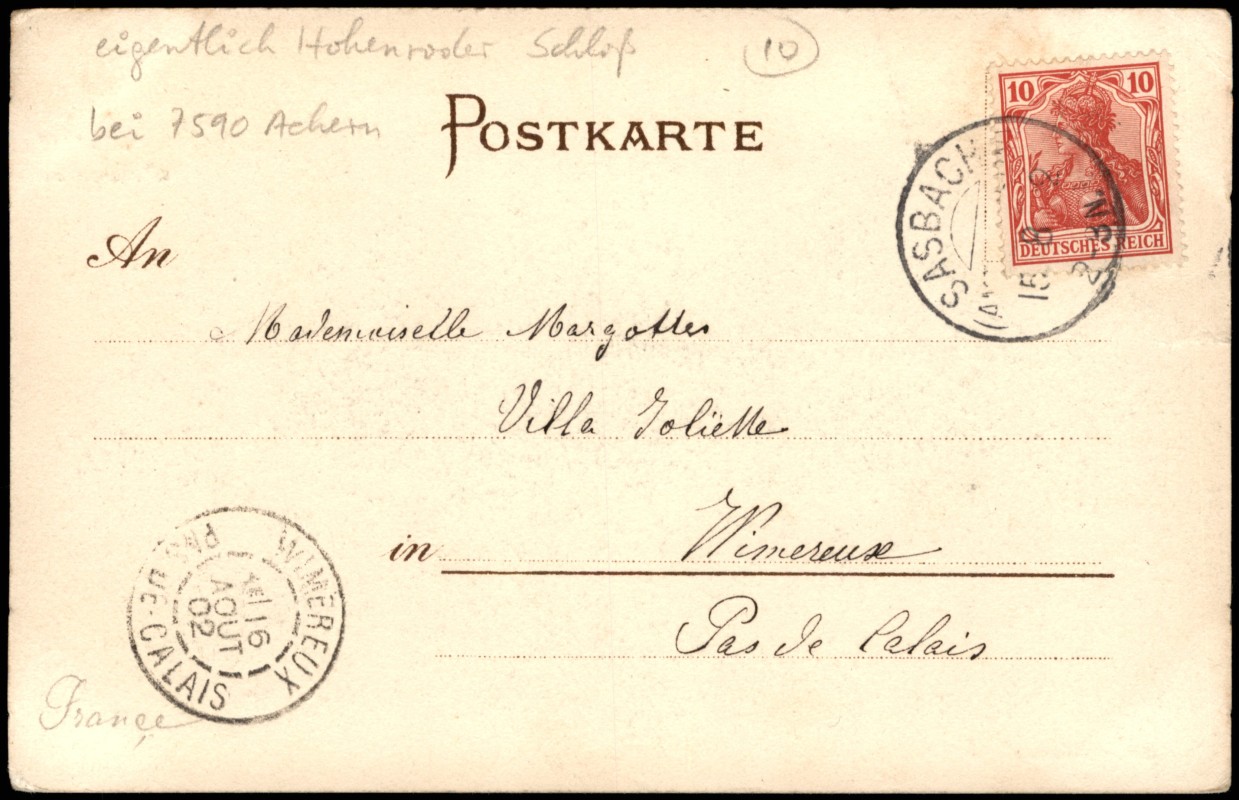 eigentlich Hohenroder Schloß
10
bei 7590 Achern
POSTKARTE
10 10
DEUTSCHES REICH
SASBACH
15 8
2-3N
An
Mademoiselle Margottes
Villa Joliette
in Wimereux
Pas de Calais
WIMEREUX
PAS DE-CALAIS
16
AOUT
02
France